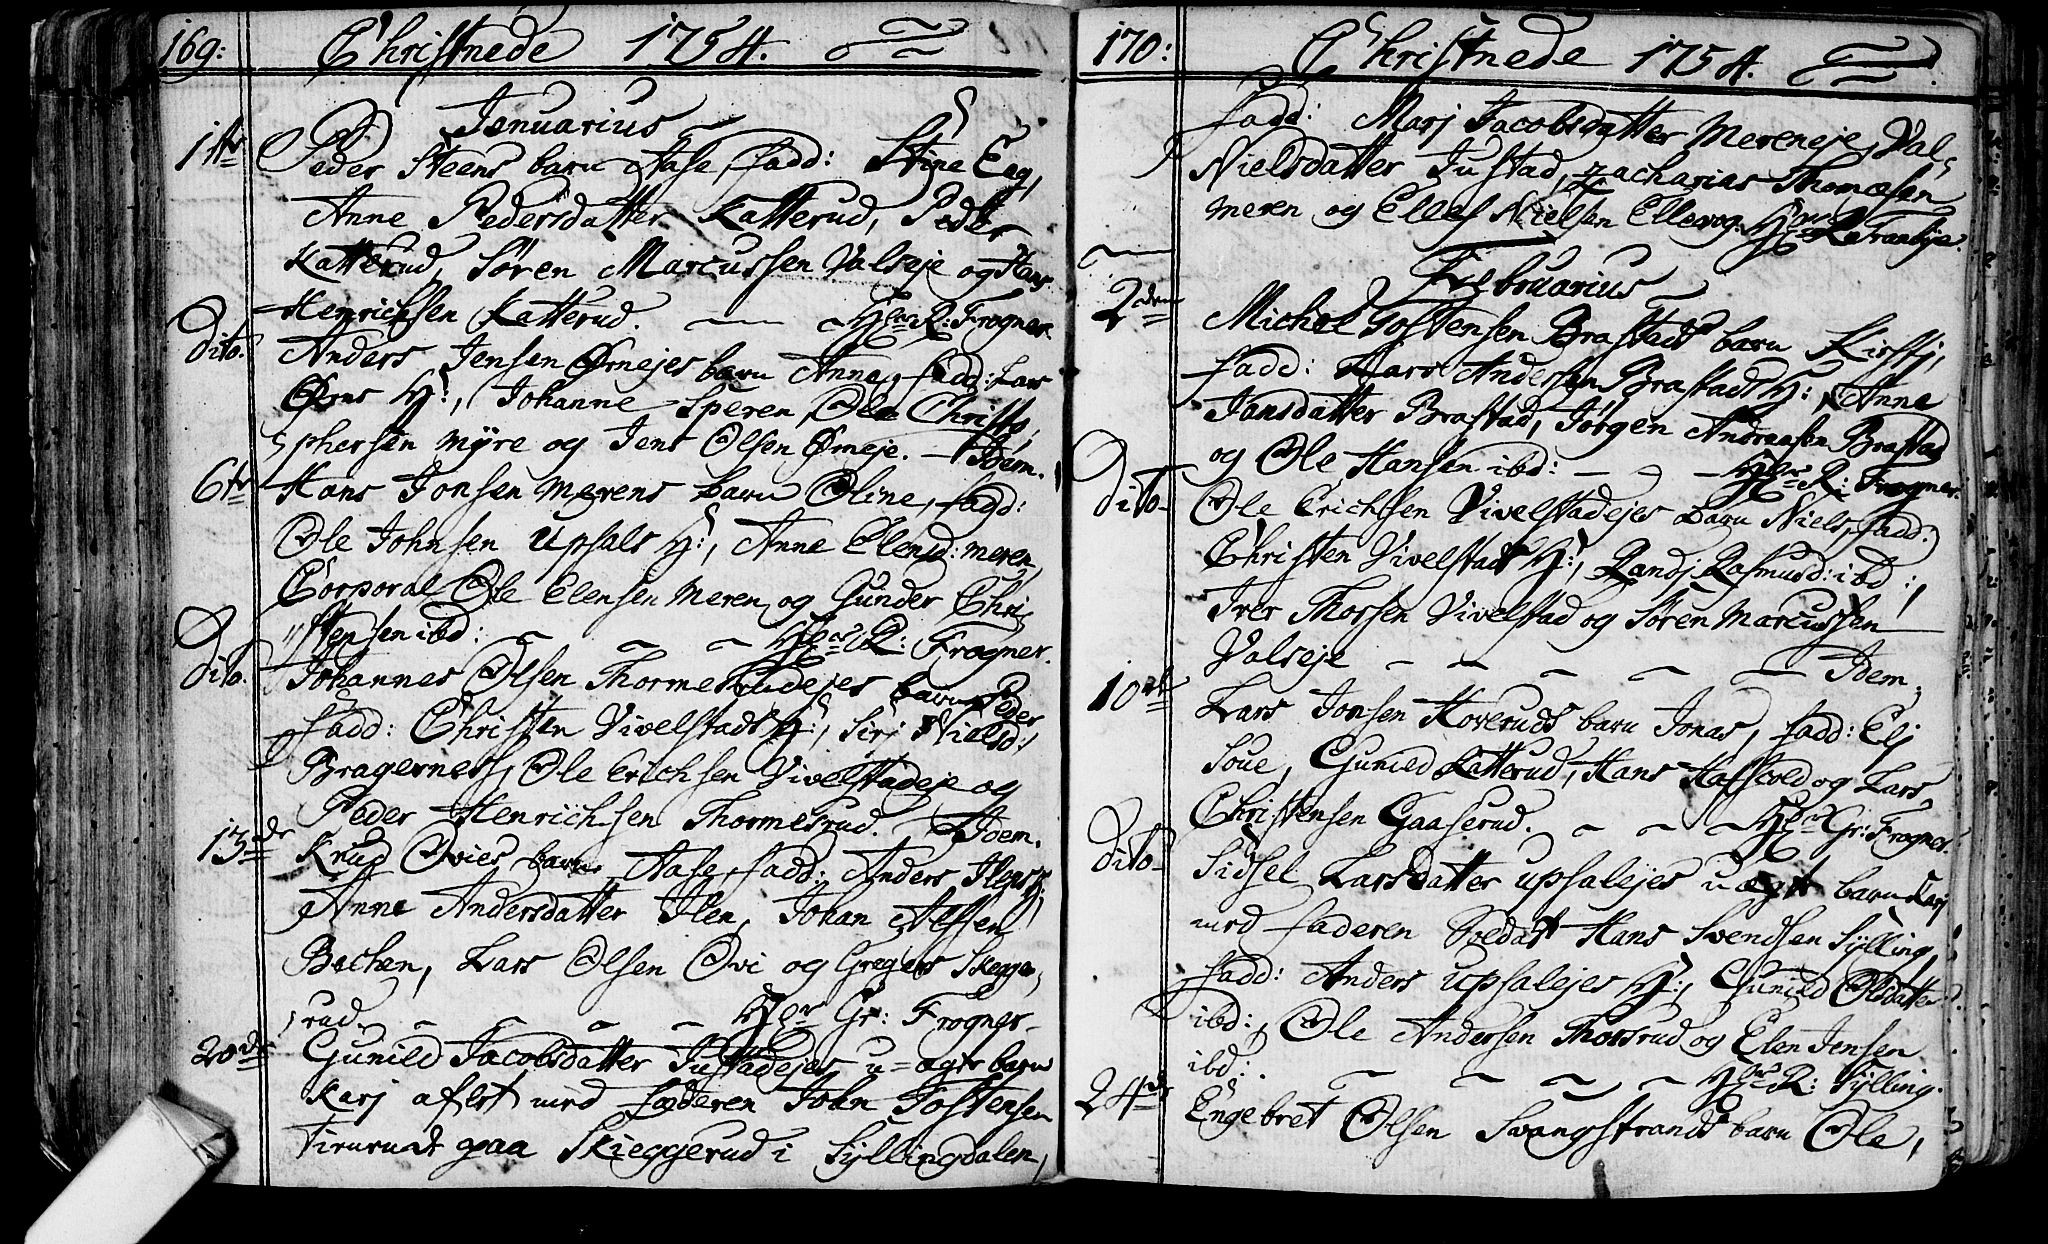 169: Christnede 1754.
Januarius
1te Peder Steens barn Aase, fadd: Stine Eeg,
Anne Pedersdatter Katterud, Peder
Katterud, Søren Marcussen Valseje og Hans
Henrichsen Katterud. Hr R: Frogner
Dito. Anders Jensen Ørnejes barn Anne, fadd: Lars
Ørns H:, Johanne Speren, Ole Christo,
phersen Myre og Jens Olsen Ørneje. Idem.
6te Hans Jonsen Merens barn Oline, fadd:
Ole Johnsen Upsals H:, Anne Elensd: Meren,
Corporal Ole Elensen Meren og Gunder Chri
stensen ibd: Hr R: Frogner.
Dito. Johannes Olsen Thormesrudejes barn Peder
fadd: Christen Vivelstads H:, Sirj Nielsd:
Bragernes, Ole Erichsen Vivelstadeje og
Peder Henrichsen Thormesrud. Idem.
13de Knud Ovies barn Aase, fadd: Anders Ilens H:,
Anne Andersdatter Ilen, Johan Alfsen
Bachen, Lars Olsen Ovi og Gregers Skegge,
rud. Hr Gr: Frogner
20de Gunild Jacobsdatter Justadejes u=ægte barn
Karj aflet med faderen John Tostensen
paa Skieggerud i Syllingdalen,
170: Christnede 1754.
fadd: Marj Jacobsdatter Mereneje, Val
Nielsdatter Justad, Zacharias Thomæsen
Meren og Ellef Nielsen Ellevog. Hr
Februarius
2den Michel Tostensen Brastads barn Kirstj,
fadd: Lars Andersen Brastads H:, Anne
Jansdatter Brastad, Jørgen Andreasen Brastad
og Ole Hansen ibd: Hr R: Frogner.
Dito Ole Erichsen Vivelstadejes barn Niels, fadd:
Christen Vivelstads H:, Randj Rasmusd: ibd:,
Iver Thorsen Vivelstad og Søren Marcussen
Valseje Idem,
10de Lars Jonsen Hoveruds barn Jonas, fadd: Elj
Soue, Gunild Katterud, Hans Hafsvold og Lars
Christensen Gaaserud. Hr Gr: Frogner.
Dito Sidsel Larsdatter Upsalejes uægte barn Karj
med faderen Soldat Hans Svendsen Sylling,
fadd: Anders Upsalejes H:, Gunild Olsdatter
ibd:, Ole Andersen Thorsrud og Elen Jensen
ibd: Hr R: Sylling.
24de Engebret Olsen Svangstrands barn Ole,